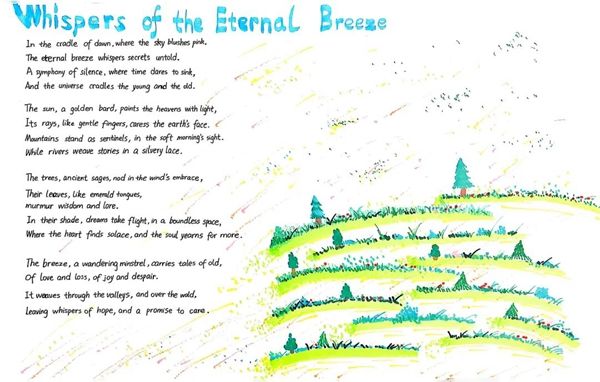 Whispers of the Eternal Breeze
In the cradle of dawn, where the sky blushes pink.
The eternal breeze whispers secrets untold.
A symphony of silence, where time dares to sink,
And the universe cradles the young and the old.
The sun, a golden bard, paints the heavens with light,
Its rays, like gentle fingers, caress the earth's face.
Mountains stand as sentinels, in the soft morning's sight.
While rivers weave stories in a silvery lace.
The trees, ancient sages, nod in the wind's embrace,
Their leaves, like emerald tongues,
murmur wisdom and lore.
In their shade, dreams take flight, in a boundless space,
Where the heart finds solace, and the soul yearns for more.
The breeze, a wandering minstrel, carries tales of old,
Of love and loss, of joy and despair.
It weaves through the valleys, and over the wold,
leaving whispers of hope, and a promise to care.